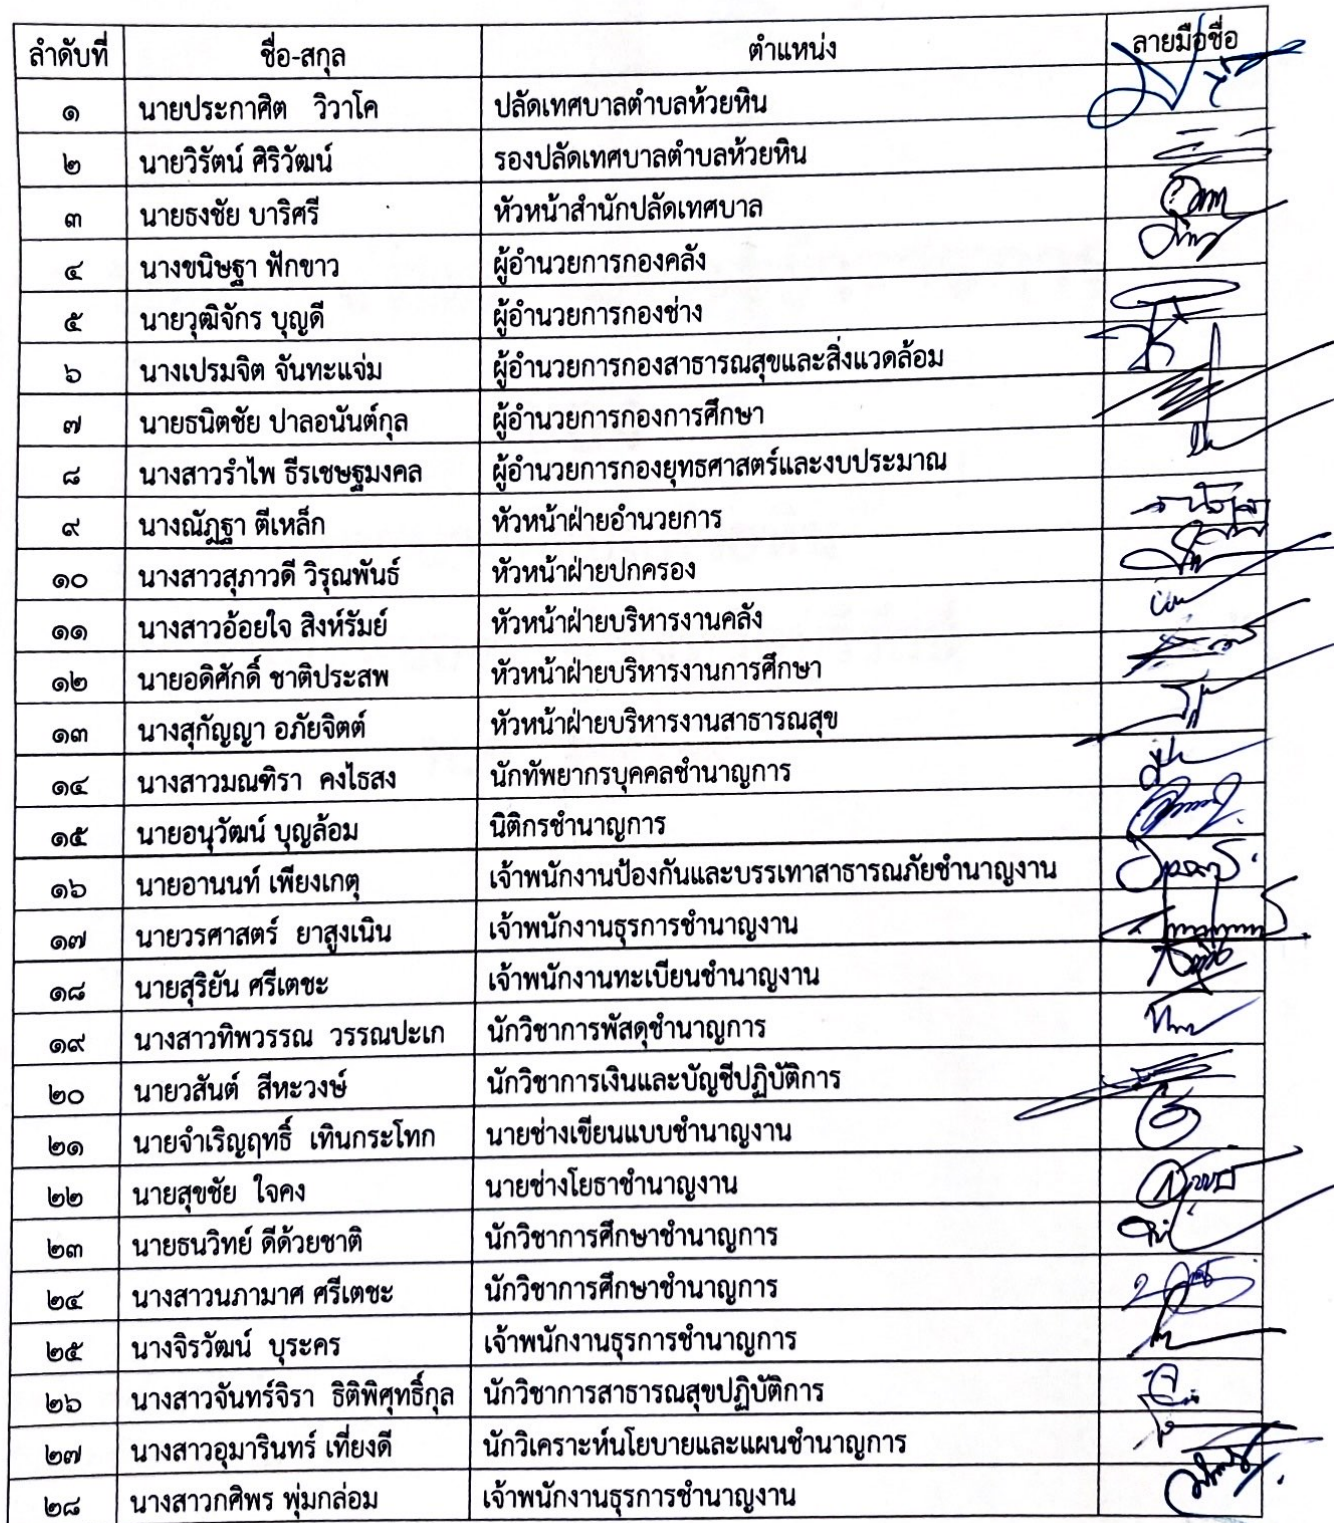 ลำดับที่ ชื่อ-สกุล ตำแหน่ง ลายมือชื่อ
๑ นายประกาศิต วิวาโค ปลัดเทศบาลตำบลห้วยหิน
๒ นายวิรัตน์ ศิริวัฒน์ รองปลัดเทศบาลตำบลห้วยหิน
๓ นายธงชัย บาริศรี หัวหน้าสำนักปลัดเทศบาล
๔ นางขนิษฐา ฟักขาว ผู้อำนวยการกองคลัง
๕ นายวุฒิจักร บุญดี ผู้อำนวยการกองช่าง
๖ นางเปรมจิต จันทะแจ่ม ผู้อำนวยการกองสาธารณสุขและสิ่งแวดล้อม
๗ นายธนิตชัย ปาลอนันต์กุล ผู้อำนวยการกองการศึกษา
๘ นางสาวรำไพ ธีรเชษฐมงคล ผู้อำนวยการกองยุทธศาสตร์และงบประมาณ
๙ นางณัฏฐา ตีเหล็ก หัวหน้าฝ่ายอำนวยการ
๑๐ นางสาวสุภาวดี วิรุณพันธ์ หัวหน้าฝ่ายปกครอง
๑๑ นางสาวอ้อยใจ สิงห์รัมย์ หัวหน้าฝ่ายบริหารงานคลัง
๑๒ นายอดิศักดิ์ ชาติประสพ หัวหน้าฝ่ายบริหารงานการศึกษา
๑๓ นางสุกัญญา อภัยจิตต์ หัวหน้าฝ่ายบริหารงานสาธารณสุข
๑๔ นางสาวมณฑิรา คงไธสง นักทัพยากรบุคคลชำนาญการ
๑๕ นายอนุวัฒน์ บุญล้อม นิติกรชำนาญการ
๑๖ นายอานนท์ เพียงเกตุ เจ้าพนักงานป้องกันและบรรเทาสาธารณภัยชำนาญงาน
๑๗ นายวรศาสตร์ ยาสูงเนิน เจ้าพนักงานธุรการชำนาญงาน
๑๘ นายสุริยัน ศรีเตชะ เจ้าพนักงานทะเบียนชำนาญงาน
๑๙ นางสาวทิพวรรณ วรรณปะเก นักวิชาการพัสดุชำนาญการ
๒๐ นายวสันต์ สีหะวงษ์ นักวิชาการเงินและบัญชีปฏิบัติการ
๒๑ นายจำเริญฤทธิ์ เทินกระโทก นายช่างเขียนแบบชำนาญงาน
๒๒ นายสุขชัย ใจคง นายช่างโยธาชำนาญงาน
๒๓ นายธนวิทย์ ดีด้วยชาติ นักวิชาการศึกษาชำนาญการ
๒๔ นางสาวนภามาศ ศรีเตชะ นักวิชาการศึกษาชำนาญการ
๒๕ นางจิรวัฒน์ บุระคร เจ้าพนักงานธุรการชำนาญการ
๒๖ นางสาวจันทร์จิรา ธิติพิศุทธิ์กุล นักวิชาการสาธารณสุขปฏิบัติการ
๒๗ นางสาวอุมารินทร์ เที่ยงดี นักวิเคราะห์นโยบายและแผนชำนาญการ
๒๘ นางสาวกศิพร พุ่มกล่อม เจ้าพนักงานธุรการชำนาญงาน